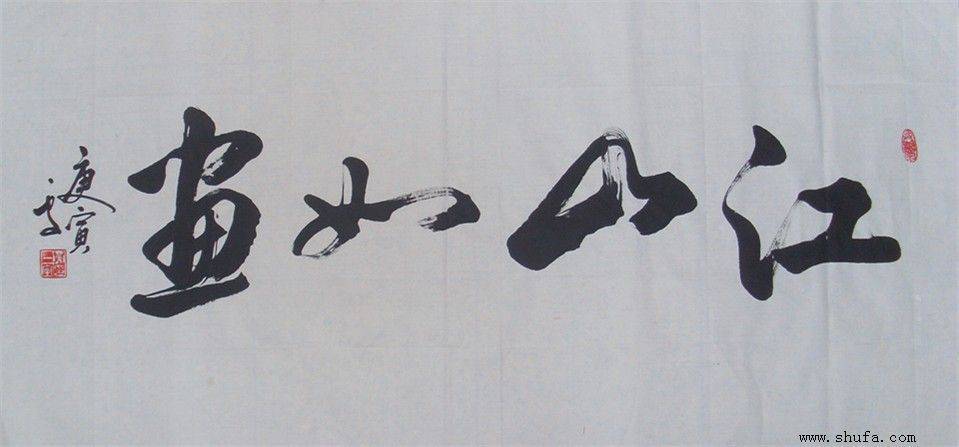 江山如画
庚寅
www.shufa.com